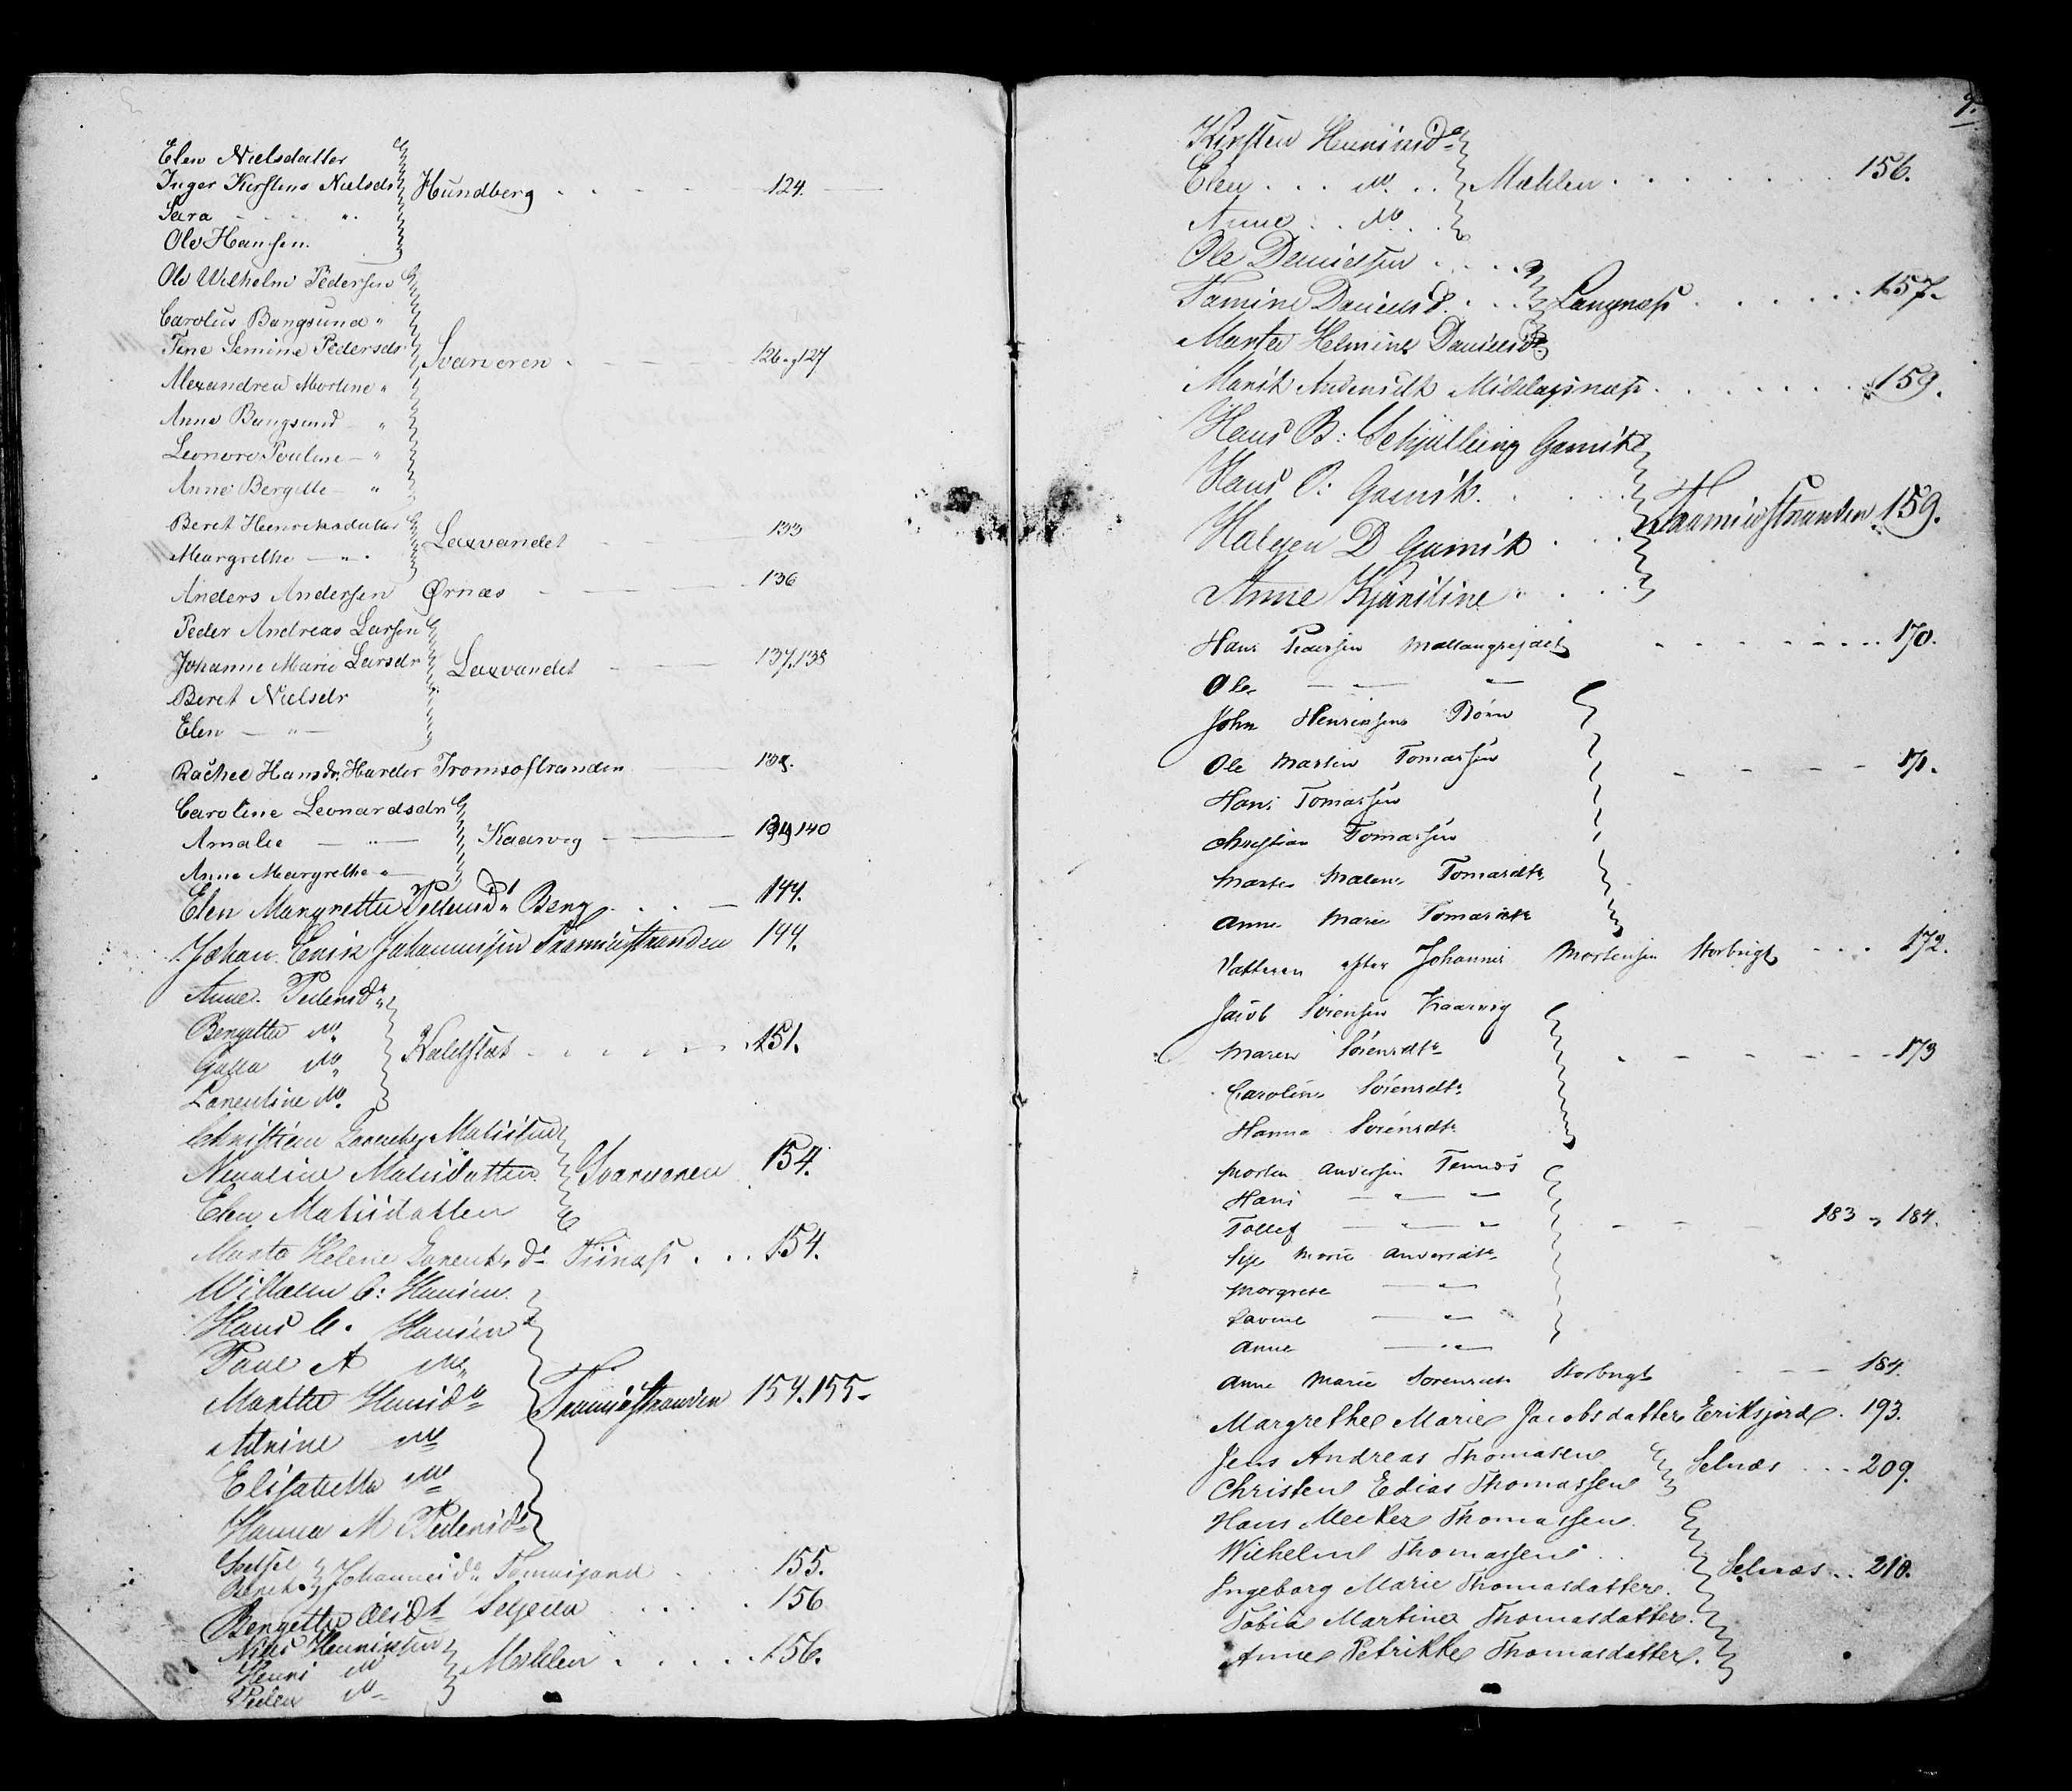 Elen Nielsdatter
Inger Kirstine Nielsdr Hundberg 124.
Sara — ".
Ole Hansen.
Ole Wilhelm Pedersen
Carolus Bangsund "
Tine Semine Pedersdr Svarvoren 126 og 127
Alexandrea Mortine "
Anna Bangsund — "
Leonore Pouline — "
Anne Bergitte — "
Beret Henriksdatter Laxvandet 133
Margrethe — " .
Anders Andersen Ørnæs — 136
Peder Andreas Larsen
Johanne Marie Larsdr Laxvandet — 137,138
Beret Nielsdr
Elen — " —
Rachel Hansdr. Harder Tromsøstranden —
Caroline Leonardsdr
Amalie — " — Kaarvog — 139,140
Anne Margrethe "
Elen Margrethe Pedersdr Berg . . — 144.
Johan Erik Johannessen Tromsøstranden 144.
Anne Pedersdr
Bergitte do
do Kaldslet 151.
Laurentine do.
Christian Matisen
Matisdatter Svarvoren 154.
Elen Matisdatter
Marta Helene dr Tiinæss . . . 154.
Wilhelm C: Hansen.
Hans C. Hansen
Paul A do
Martha Hansdr Tromsøstranden 154.155.
Adrine do
Elisabetha do
Hanna M Pedersdr
Johannesdr 155.
Beret
Bergitte Olsdt 156
Niels Henriksen
Henri do Mæhlen . . . . . 156.
Peder do
9.
Kirsten Hennensdr
Elen . . . do . . Mæhlen . . . . . . . 156.
Anne . . do . .
Ole Danielsen . . . .
Danielsd. . . . Langnæss . . . . . 157.
Marta Helmine Danielsdr
Marit Andersdtr . . . . . . 159.
Hans B: Schjelling Gamst
Hans O: Gamst. . . . . Tromsøstranden 159.
D Gamst . . .
Anne Kjerstine " . . .
Hans Pedersen Mallangsejdet 170.
Ole — " — "
John Henriksens Børn
Ole Martin Tomassen 171.
Hans Tomassen
Christian Tomassen
Marte Malene Tomasdtr
Anne Marie Tomasdtr
Datteren efter Johannes Mortensen Storbugt . . . 172.
Jacob Sørensen Kaarvig
Maren Sørensdtr 173
Caroline Sørensdtr
Hanna Sørensdtr
Morten Andersen Tennes
Hans — " — "
Tollef — " — " 183 og 184.
Marie Andersdtr
Margrete — "
— "
Anne — " —
Anne Marie Sørensdtr Storbugt — 184.
Margrethe Marie Jacobsdatter Eriksjord. 193.
Jens Andreas Thomasen Selnæs . . . 209.
Christen Edias Thomassen
Hans Meeker Thomassen.
Wilhelm Thomassen . .
Ingeborg Marie Thomasdatter. Selnæs . . 210.
Tobia Martine Thomasdatter.
Anne Petrikke Thomasdatter.